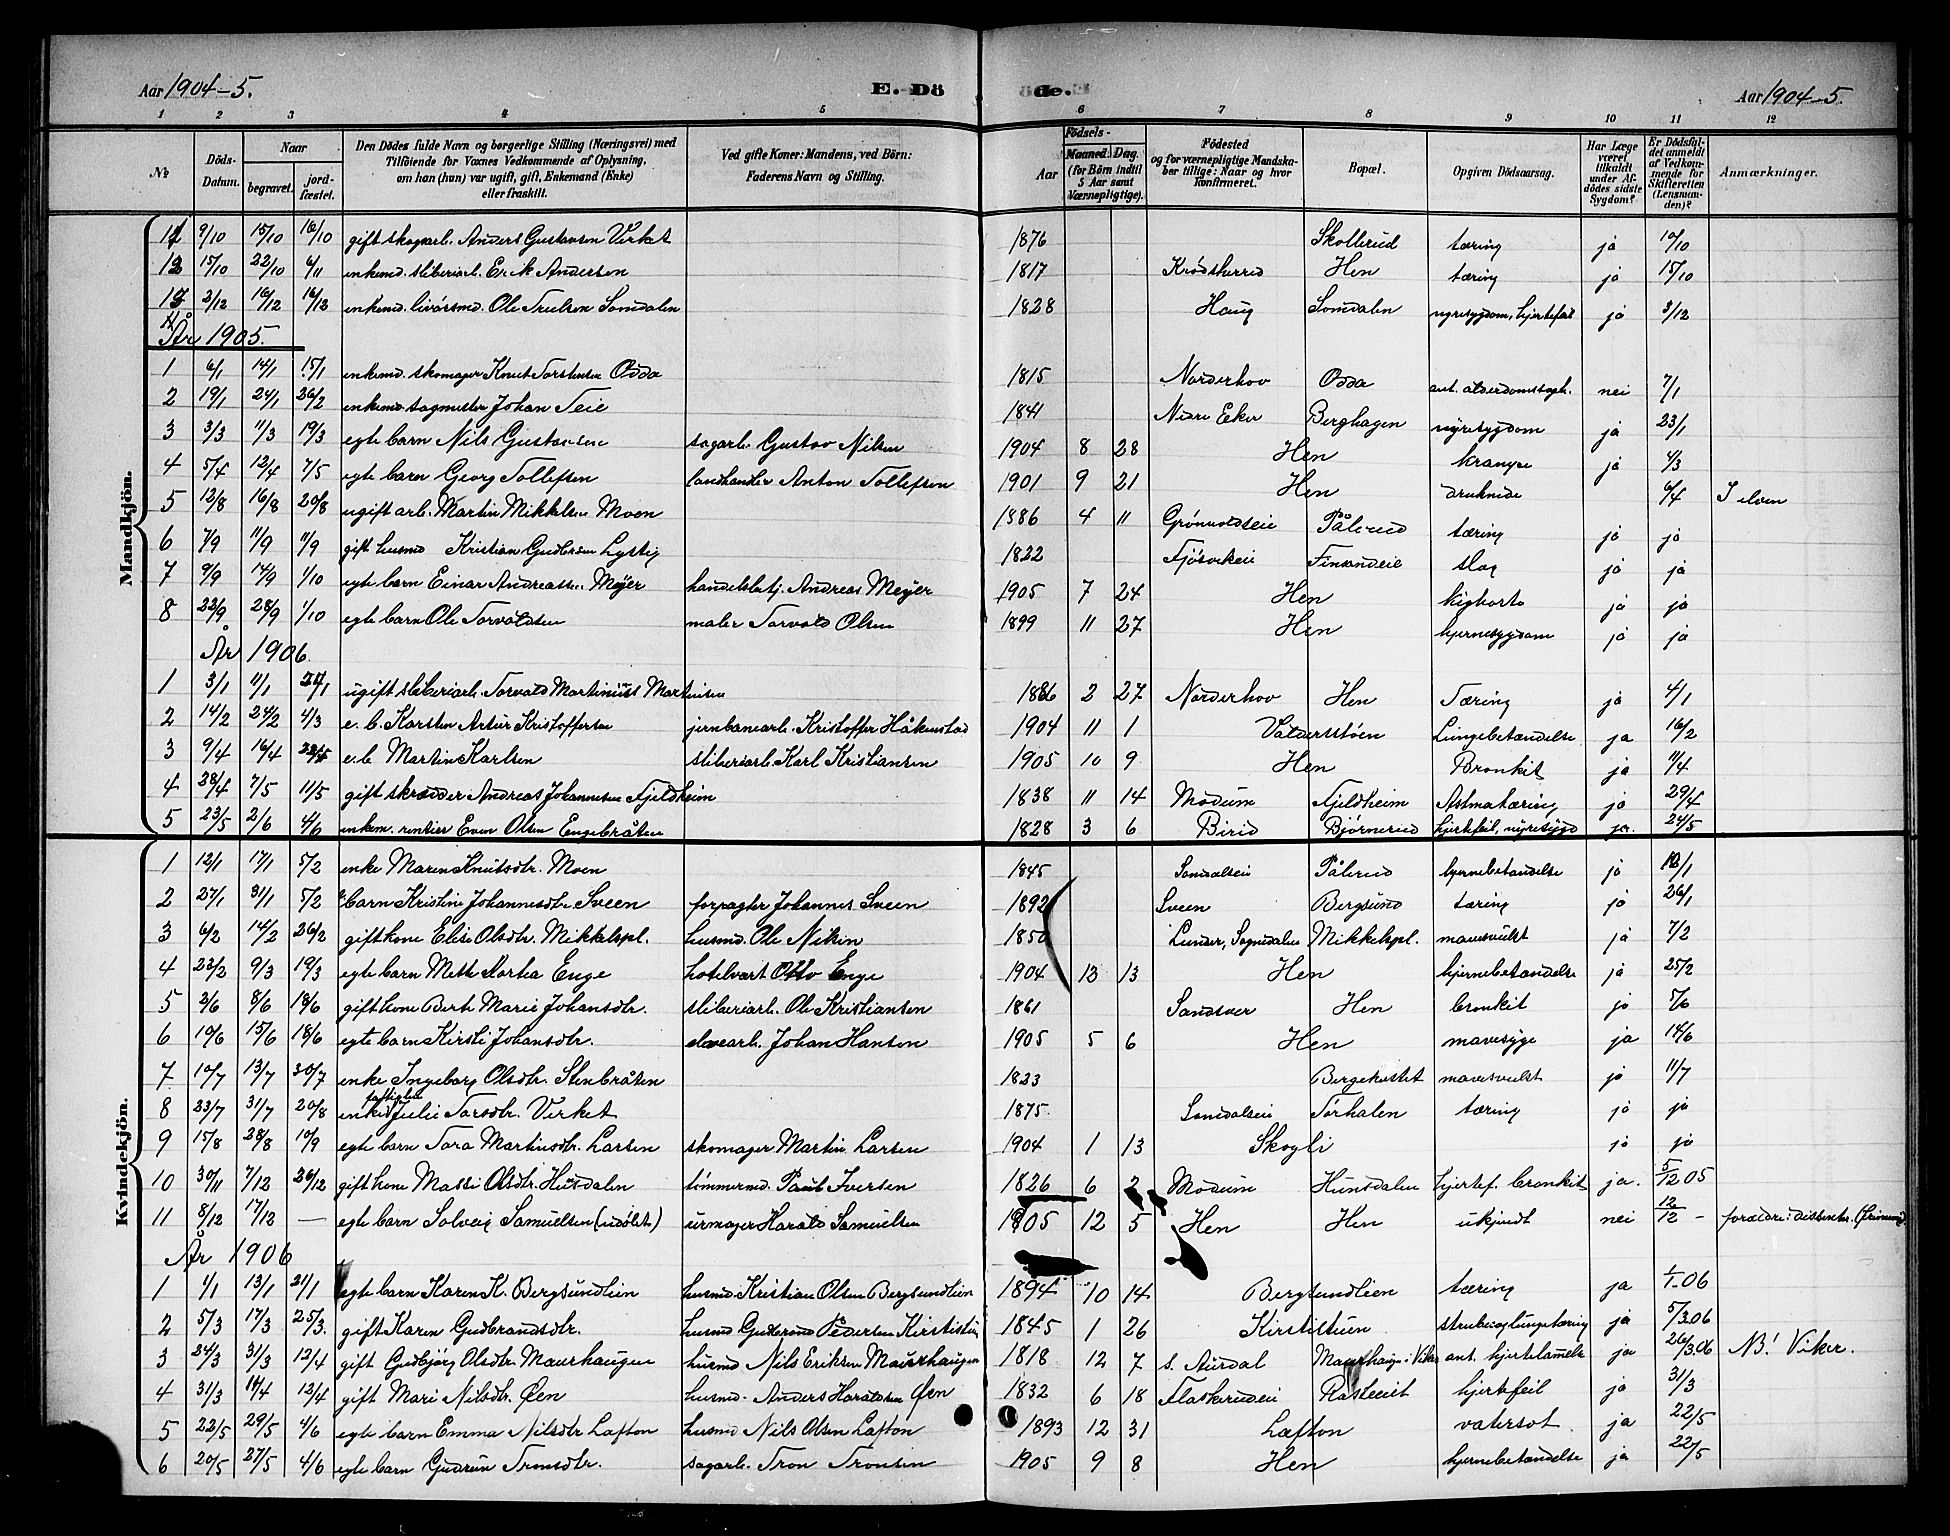 Aar 1904-5. E. Dö de. Aar 1904-5.
1 2 3 4 5 6 7 8 9 10 11 12
№ Döds-Datum. Naar begravet. jordfæstet. Den Dödes fulde Navn og borgerlige Stilling (Næringsvei) med Tilföiende for Voxnes Vedkommende af Oplysning, om han (hun) var ugift, gift, Enkemand (Enke) eller fraskilt. Ved gifte Koner: Mandens, ved Börn: Faderens Navn og Stilling. Födsels- Aar Maaned. Dag. (for Börn indtil 5 Aar samt Værnepligtige). Födested og for værnepligtige Mandskaber tillige: Naar og hvor konfirmeret. Bopæl. Opgiven Dödsaarsag. Har Læge været tilkaldt under Afdödes sidste Sygdom? Er Dödsfaldet anmeldt af Vedkommende for Skifteretten (Lensmanden)? Anmærkninger.
Mandkjön.
11 9/10 15/10 16/10 gift skogarb. Anders Gustavsen Virket 1876 Skollerud tæring ja 10/10
12 15/10 22/10 6/11 enkemd. sliberiarb. Erik Andersen 1817 Krødsherred Hen tæring ja 15/10
13 2/12 10/12 16/12 enkemd. livörsmd. Ole Truelsen Somdalen 1828 Haug Somdalen nyresygdom, hjertefeil ja 3/12
År 1905.
1 6/1 14/1 15/1 enkemd. skomager Knut Torstensen Odda 1815 Norderhov Odda ant. alderdomssvgh. nei 7/1
2 19/1 24/1 26/2 enkemd. sagmester Johan Teie 1841 Nedre Eker Berghagen nyresygdom ja 23/1
3 3/3 11/3 19/3 egte barn Nils Gustavsen sagarb. Gustav Nilsen 1904 8 28 Hen krampe ja 4/3
4 5/4 12/4 7/5 egte barn Georg Tollefsen landhandler Anton Tollefsen 1901 9 21 Hen druknede 6/4 I elven
5 12/8 16/8 20/8 ugift arb. Martin Mikkelsen Moen 1886 4 11 Grønvoldseie Pålerud tæring ja ja
6 7/9 11/9 11/9 gift husmd Kristian Gudbrsen Lystig 1822 Fjøsvikeie Finsandeie slag ja ja
7 9/9 14/9 1/10 egte barn Einar Andreassen Meyer handelsbetj. Andreas Meyer 1905 7 24 Hen kighoste ja ja
8 22/9 28/9 1/10 egte barn Ole Torvaldsen maler Torvald Olsen 1899 11 27 Hen hjernesygdom ja ja
År 1906.
1 3/1 11/1 21/1 ugift sliberiarb. Torvald Martinius Martinsen 1886 2 27 Norderhov Hen Tæring ja 4/1
2 14/2 24/2 4/3 e. b. Karsten Artur Kristoffersen jernbanearb. Kristoffer Håkenstad 1904 11 1 Valdersstøen Lungebetændelse ja 16/2
3 9/4 16/4 e.b. Martin Karlsen sliberiarb. Karl Kristiansen 1905 10 9 Hen Bronkit ja 11/4
4 28/4 7/5 11/5 gift skrædder Andreas Johannesen Fjeldheim 1838 11 14 Modum Fjeldheim Astma tæring ja 29/4
5 23/5 2/6 4/6 enkem. rentier Even Olsen Engebråten 1828 3 6 Birid Bjørnerud hjertefeil, nyresygd ja. 24/5
Kvindekjön.
1 12/1 17/1 5/2 enke Maren Knutsdtr. Moen 1845 Somdalseie Pålerud hjernebetændelse ja 12/1
2 27/1 31/1 5/2 e. barn Kristine Johannesdtr Sveen forpagter Johannes Sveen 1892 Sveen Bergsund tæring ja 26/1
3 6/2 14/2 26/2 gift kone Elise Olsdtr. Mikkelspl. husmd. Ole Nikin 1850 Lunder, Sognedalen Mikkelspl. mavesvulst ja 7/2
4 22/2 9/3 19/3 egte barn Mette Martha Enge hotelvært Otto Enge 1904 12 13 Hen hjernebetændelse ja 25/2
5 2/6 8/6 18/6 gift kone Berte Marie Johansdtr. sliberiarb. Ole Kristiansen 1861 Sandsvær Hen bronkit ja 5/6
6 10/6 15/6 18/6 egte barn Kirsti Johansdtr. elvearb. Johan Hansen 1905 5 6 Hen mavesyge ja 14/6
7 10/7 13/7 30/7 enke Ingeborg Olsdtr. Stenbråten 1823 Bergekastet mavesvulst ja 11/7
8 23/7 31/7 20/8 enke fattiglem Julie Torsdtr. Virket 1875. Somdalseie Tørhalen tæring ja ja
9 15/8 28/8 10/9 egte barn Tora Martinsdtr. Larsen skomager Martin Larsen 1904 1 13 Skogli ja ja
10 30/11 7/12 26/12 gift kone Massi Olsdtr. Husdalen tømmermd. Paul Iversen 1826 6 2 Modum Hunsdalen hjertef. bronkit ja. 5/12 05
11 8/12 17/12 — egte barn Solveig Samuelsen (udøbt) urmager Harald Samuelsen 1905 12 5 Hen Hen ukjendt nei 12/12 - forældre: dissenter.
År 1906
1 1/1 13/1 21/1 egte barn Karen K. Bergsundlien husmd. Kristian Olsen Bergsundlien 1894 10 14 Bergsundlien tæring ja 1/1-06
2 5/3 17/3 25/3. gift Karen Gudbrandsdtr. husmd Gudbrand Pedersen Kirstistuen 1845 1 26 Kirstistuen strube og lungetæring ja 5/3.06
3 24/3 31/3 12/4 gift Gudbjörg Olsdtr. Maurhaugen husmd Nils Eriksen Maurhaugen 1818 12 7 s. Aurdal Maurhaug i Viker ant. hjertelamelse ja 26/3.06 NB! Viker.
4 31/3 14/4 12/4 gift Mari Nilsdtr. Øen husmd. Anders Haraldsen Øen 1832 6 18 Flaskerudeie Rasteeiet hjertefeil ja 31/3
5 22/5 29/5 4/6 egte barn Emma Nilsdtr Lafton husmd Nils Olsen Lafton 1893 12 31 Lafton vatersot ja 22/5
6 20/5 27/5 4/6 egte barn Gudrun Tronsdtr. sagarb. Tron Tronsen 1905 9 8 Hen hjernebetændelse ja 22/5